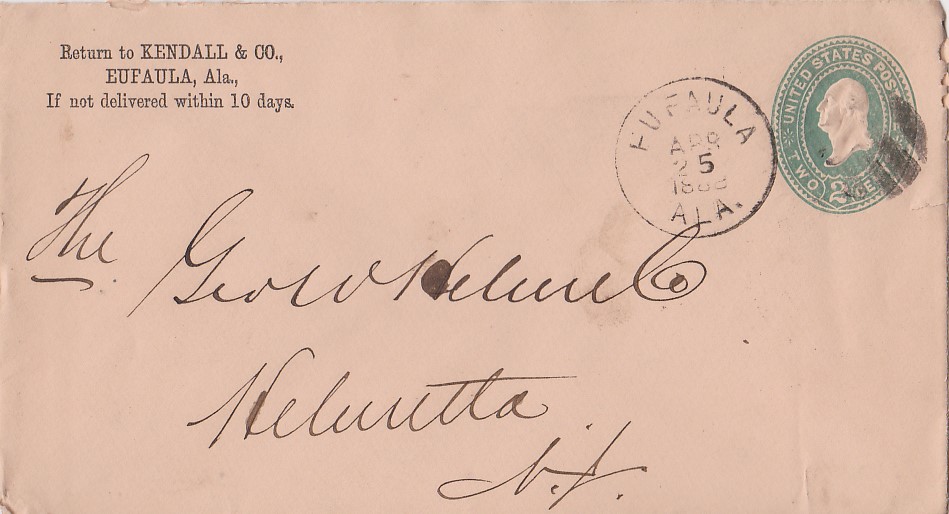 Return to KENDALL & CO.,
EUFAULA, Ala.,
If not delivered within 10 days.
EUFAULA
APR
25
ALA.
UNITED STATES POS
TWO
2
CE
The Geo W Helme Co
Helmetta
N.J.